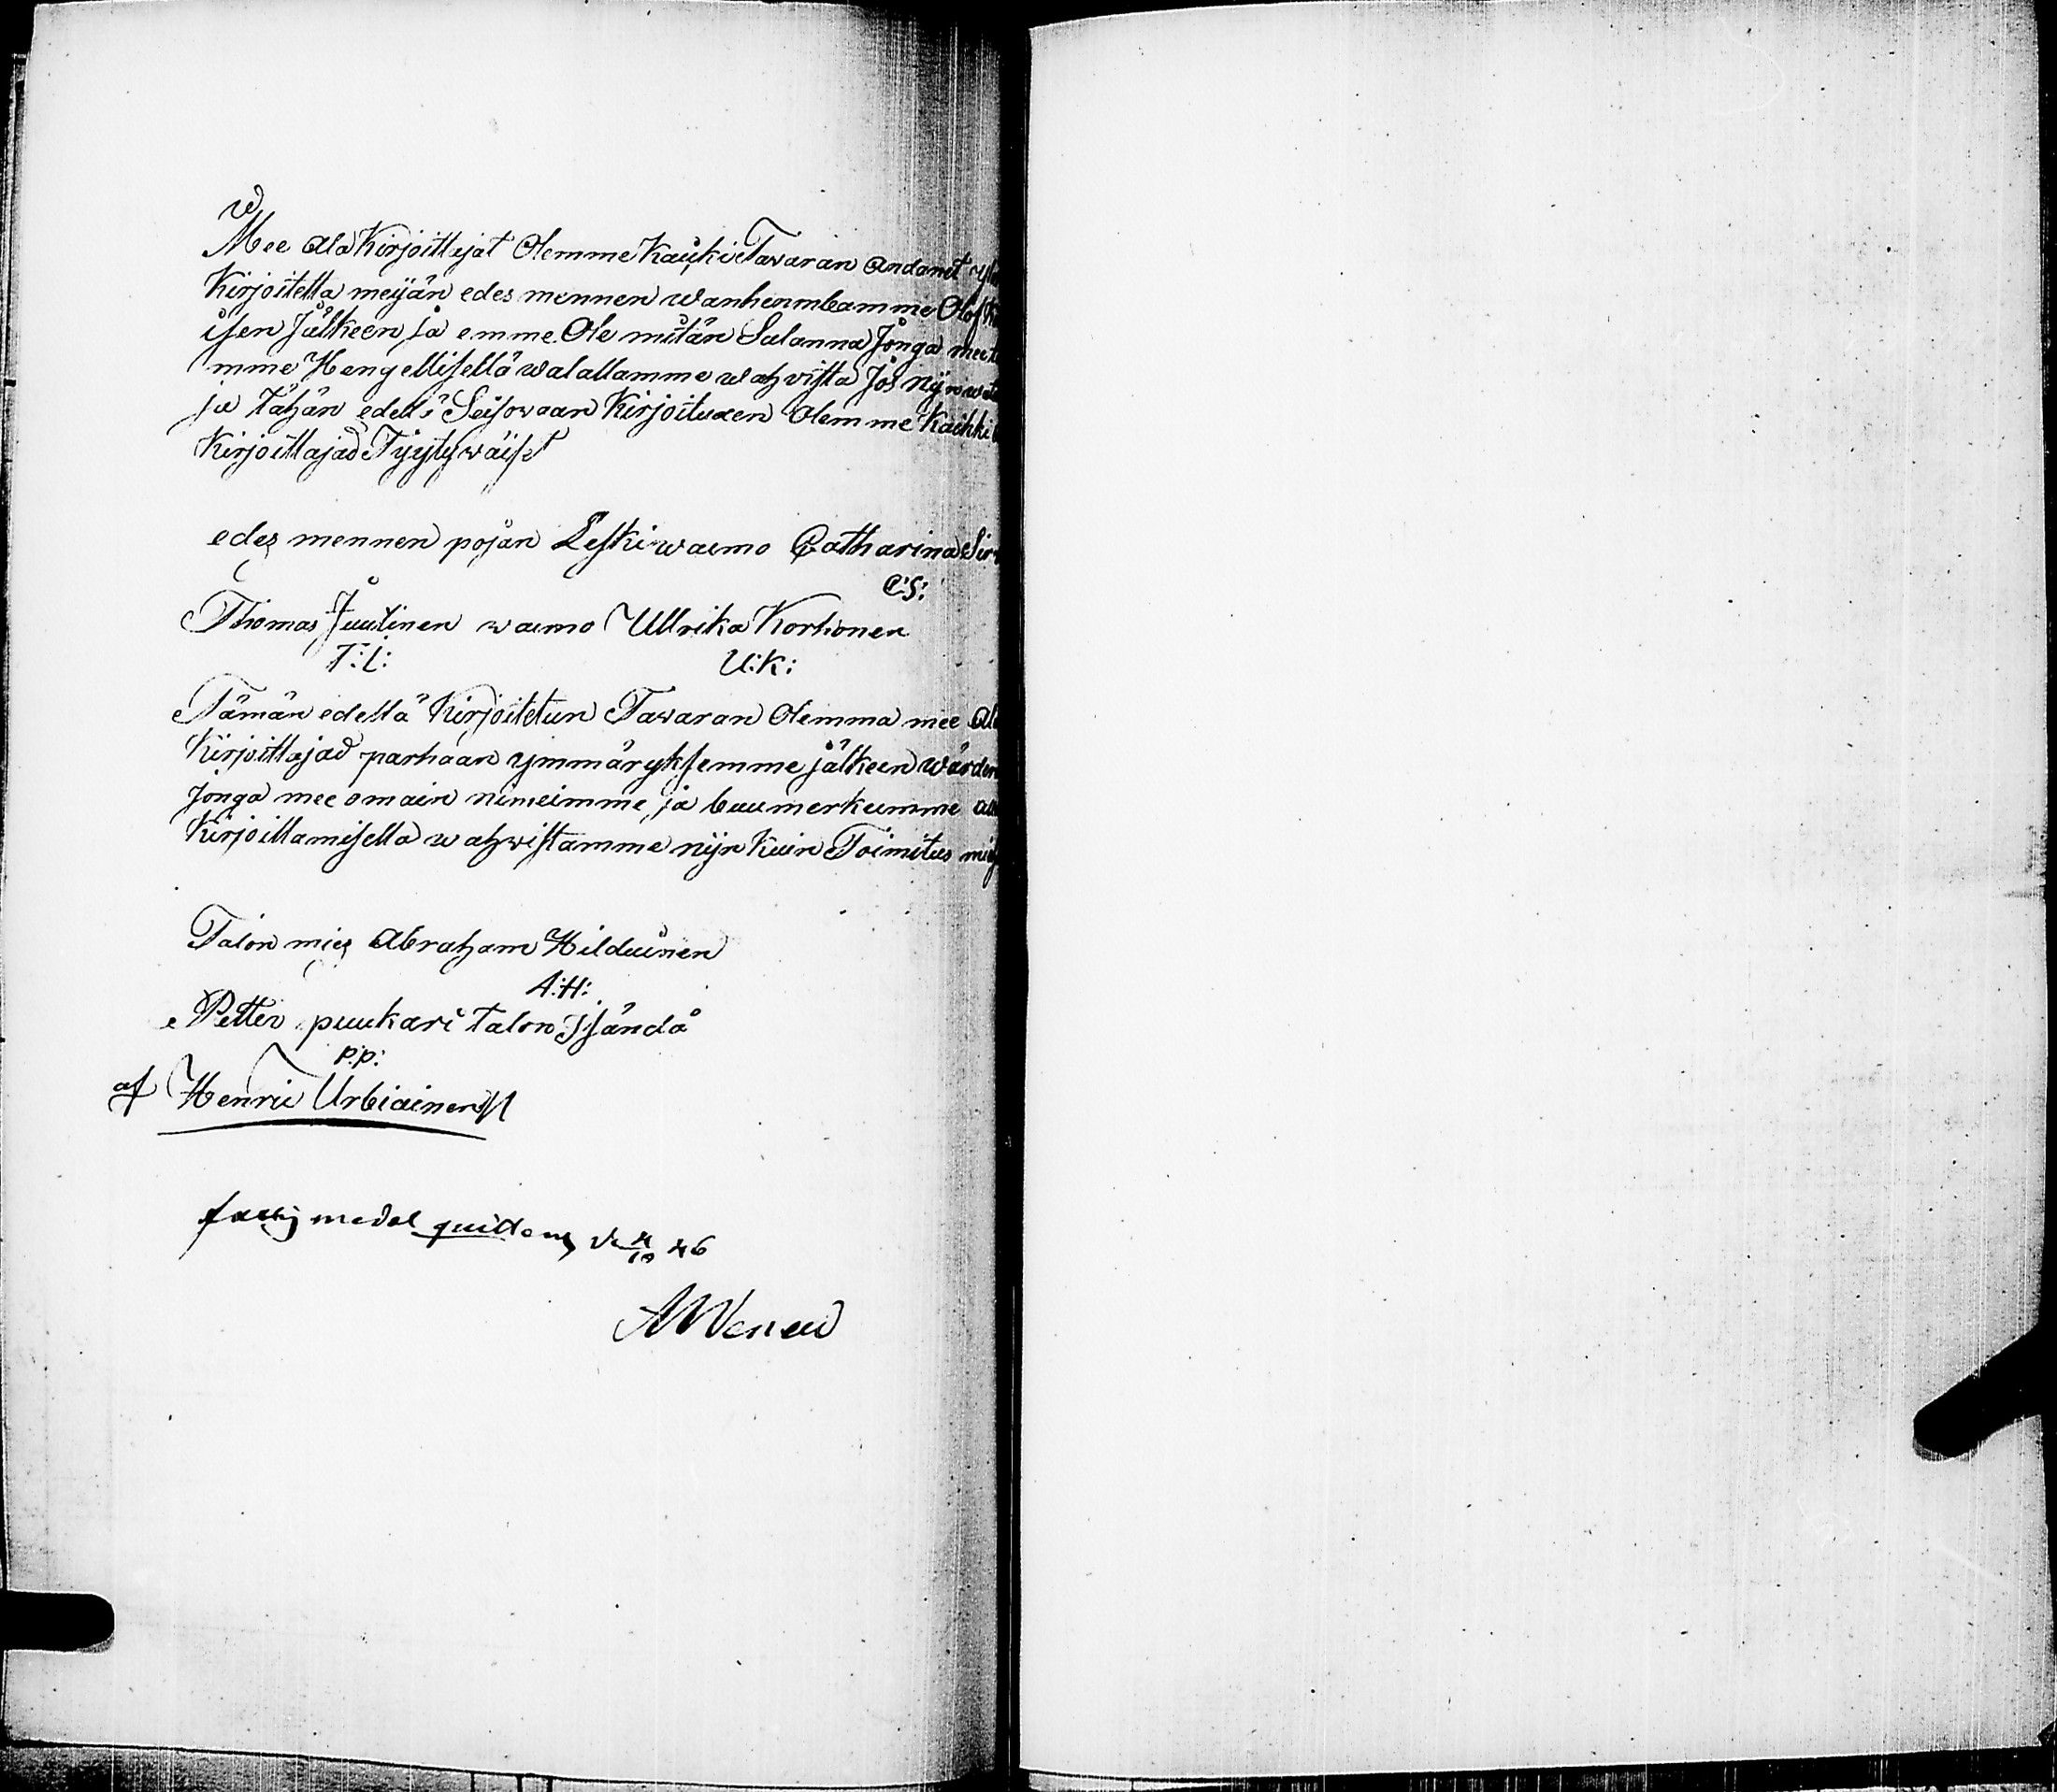 Mee Ala Kirjoittajat Olemme Kaikki Tavaran Andanet
Kirjoitella meijän edes mennen wanhenmbamme Olof
isen Jälkeen ja emme Ole mitän Salanna Jonga mee
mme Hengellisellä walallamme wahvista Jos nijn
ja tähän edellä Seisowaan Kirjoituxen Olemme Kaikki
Kirjoittajad Tyytywäiset
edes mennen pojan Leski waimo Catharina
C:S:
Thomas Juutinen waimo Ullrika Korhonen
T:I: U:K:
Tämän edellä Kirjoitetun Tawaran Olemma mee
Kirjoittajad parhaan ymmäryksemme jälkeen
Jonga mee omain nimeimme ja buumerkumme
Kirjoittamisella wahwistamme nijn kuin Toimitus
Talon mies Abraham Hilduinen
A:H:
Petter puukari talon Isändä
p:p:
af Henric Urbiainen
fattig medel quitteras d 4/10 46